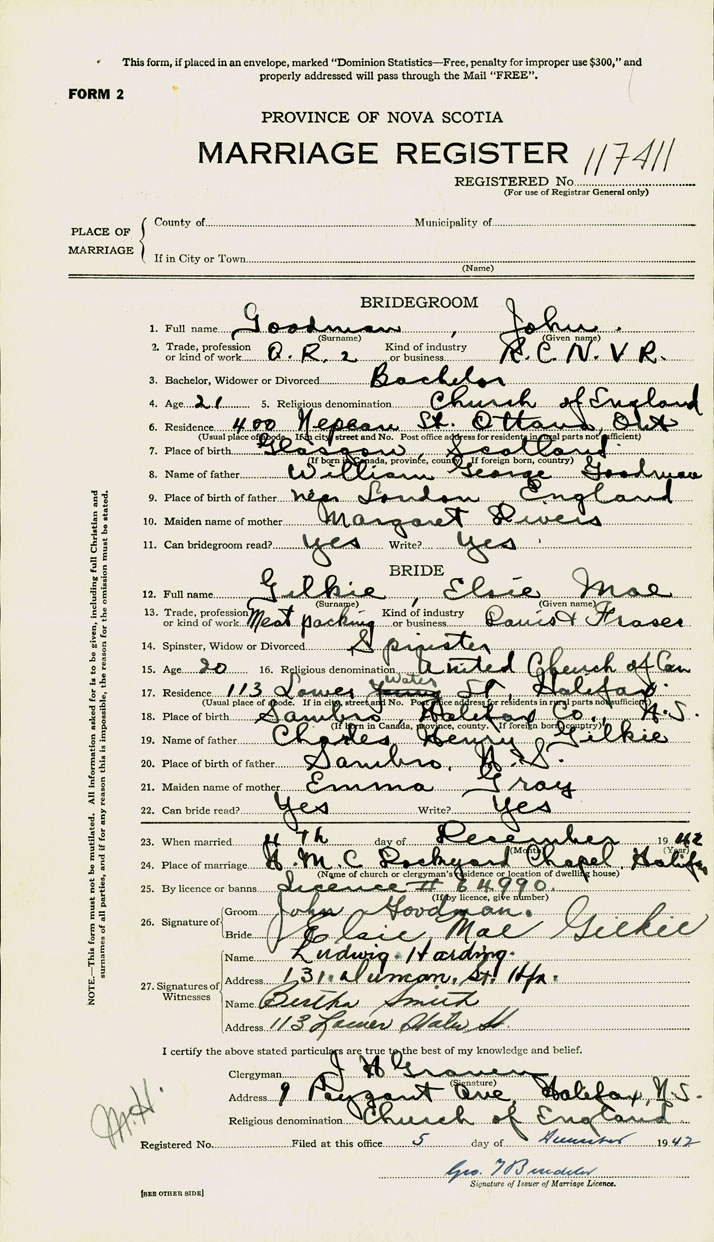 This form, if placed in an envelope, marked "Dominion Statistics—Free, penalty for improper use $300," and
properly addressed will pass through the Mail "FREE".
FORM 2
PROVINCE OF NOVA SCOTIA
MARRIAGE REGISTER 117411
REGISTERED No.
(For use of Registrar General only)
PLACE OF MARRIAGE
County of Municipality of
If in City or Town
(Name)
BRIDEGROOM
1. Full name Goodman, John.
(Surname) (Given name)
2. Trade, profession or kind of work O.R. 2 Kind of industry or business R.C.N.V.R.
3. Bachelor, Widower or Divorced Bachelor
4. Age 21 5. Religious denomination Church of England
6. Residence 400 Nepean St. Ottawa, Ont
(Usual place of abode. If in city, street and No. Post office address for residents in rural parts not sufficient)
7. Place of birth Glasgow, Scotland.
(If born in Canada, province, county. If foreign born, country)
8. Name of father William George Goodman
9. Place of birth of father near London England
10. Maiden name of mother Margaret Rivers
11. Can bridegroom read? Yes Write? Yes
BRIDE
12. Full name Gilkie, Elsie Mae
(Surname) (Given name)
13. Trade, profession or kind of work Meat packing Kind of industry or business Davis & Fraser
14. Spinster, Widow or Divorced Spinster
15. Age 20 16. Religious denomination United Church of Can
Water
17. Residence 113 Lower St, Halifax.
(Usual place of abode. If in city, street and No. Post office address for residents in rural parts not sufficient)
18. Place of birth Sambro, Halifax Co., N.S.
(If born in Canada, province, county. If foreign born country)
19. Name of father Charles Henry Gilkie
20. Place of birth of father Sambro, N.S.
21. Maiden name of mother Emma Gray
22. Can bride read? Yes Write? Yes
23. When married 4th day of December 1942
(Month) (Year)
24. Place of marriage H.M.C. Dockyard Chapel, Halifax
(Name of church or clergyman's residence or location of dwelling house)
25. By licence or banns Licence # 64990.
(If by licence, give number)
26. Signature of
Groom John Goodman.
Bride Elsie Mae Gilkie
27. Signatures of Witnesses
Name Ludwig Harding.
Address 131. St. Hfx.
Name Bertha Smith
Address 113 Lower Water St.
I certify the above stated particulars are true to the best of my knowledge and belief.
Clergyman J H Graven
(Signature)
Address 9 Ave, Halifax, N.S.
Religious denomination Church of England
Registered No. Filed at this office 5 day of December 1942
Geo.
Signature of Issuer of Marriage Licence.
[SEE OTHER SIDE]
M.H.
NOTE.—This form must not be mutilated. All information asked for is to be given, including full Christian and
surnames of all parties, and if for any reason this is impossible, the reason for the omission must be stated.